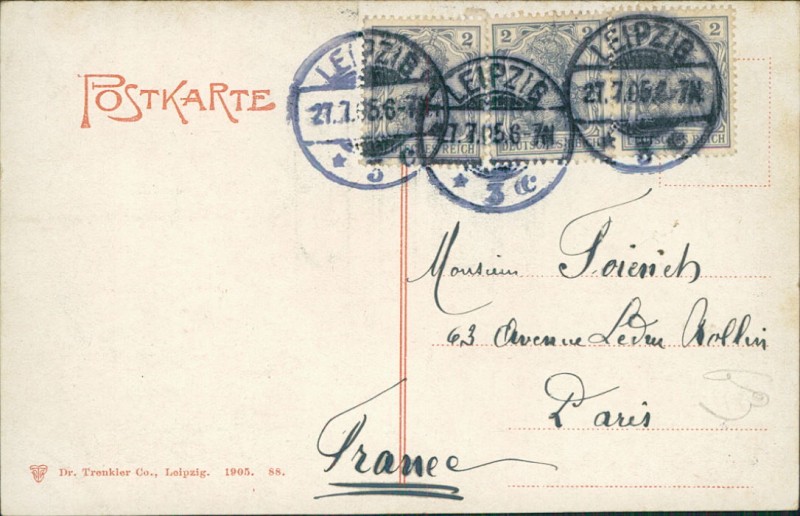 2 2 2
DEUTSCHES REICH DEUTSCHES REICH DEUTSCHES REICH
LEIPZIG LEIPZIG LEIPZIG
27.7.05.6-7N. 27.7.05.6-7N 27.7.05.6-7N.
* 3 c * 3 c 3 c
POSTKARTE
Monsieur
63 Avenue Ledru Rollin
Paris
France
Dr. Trenkler Co., Leipzig. 1905. 88.